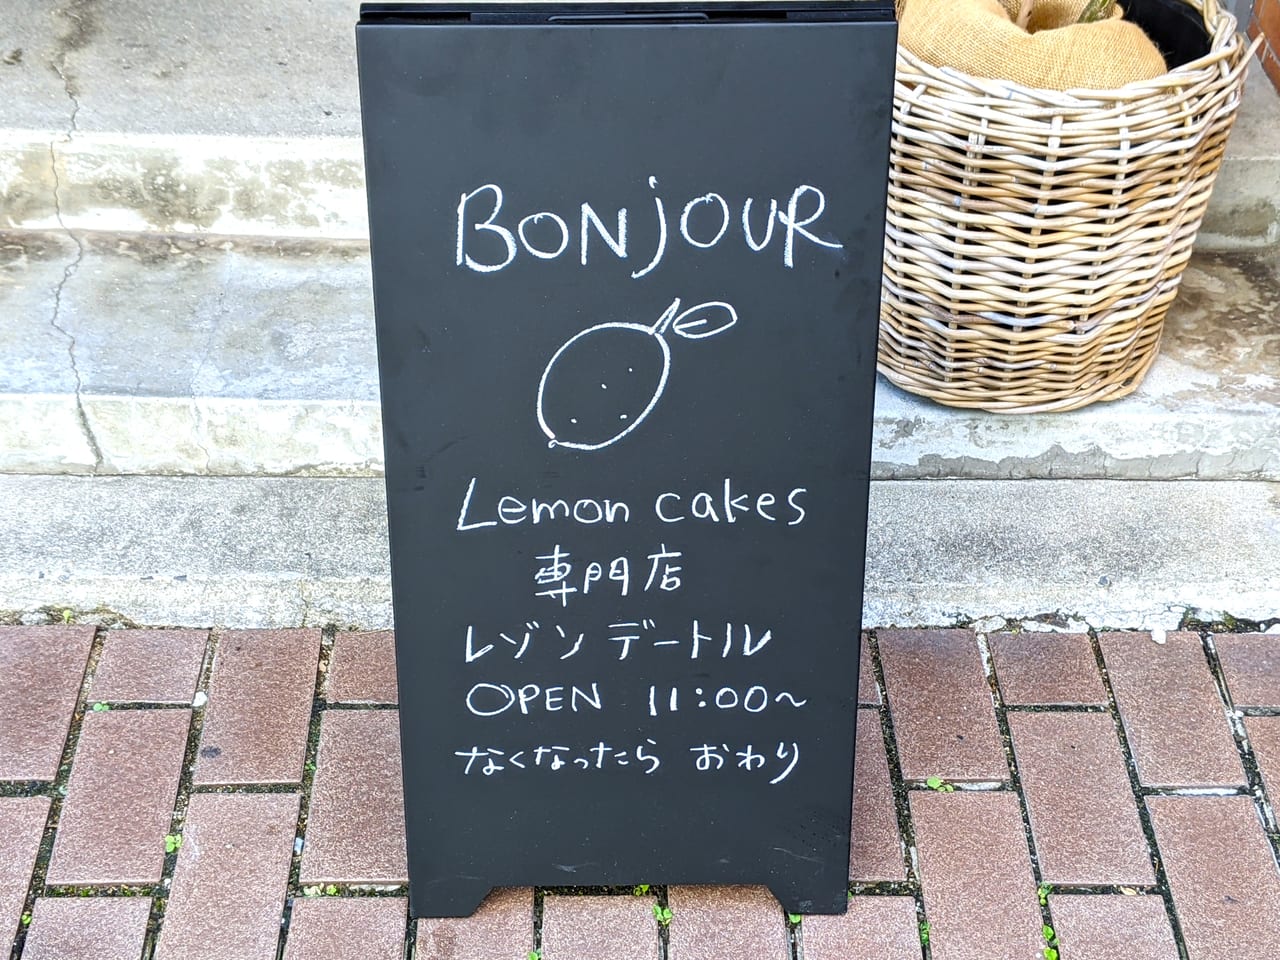 BONjOUR
Lemon cakes
専門店
レゾンデートル
OPEN 11:00〜
なくなったら おわり